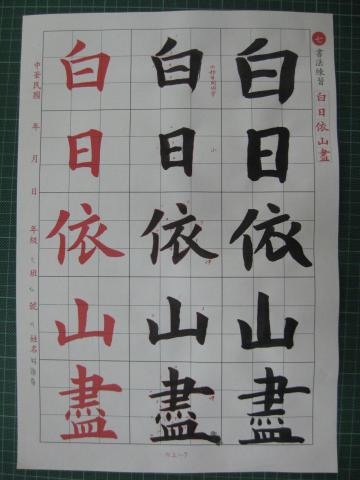 七 書法練習 白日依山盡
白日依山盡
白日依山盡
小
白日依山盡
中華民國 年 月 日 年級 班 號 姓名